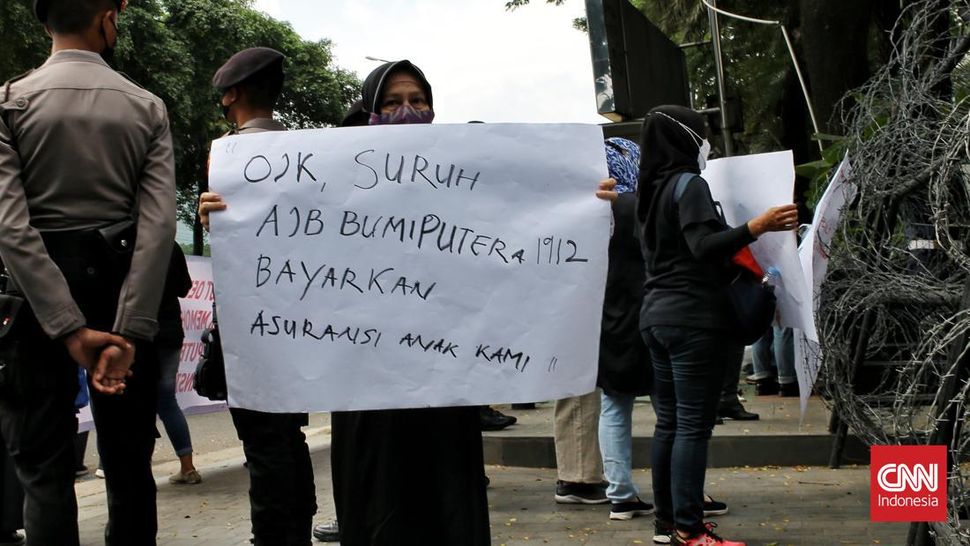 " OJK, SURUH
AJB BUMIPUTERA 1912
BAYARKAN
ASURANSI ANAK KAMI "
CNN
Indonesia